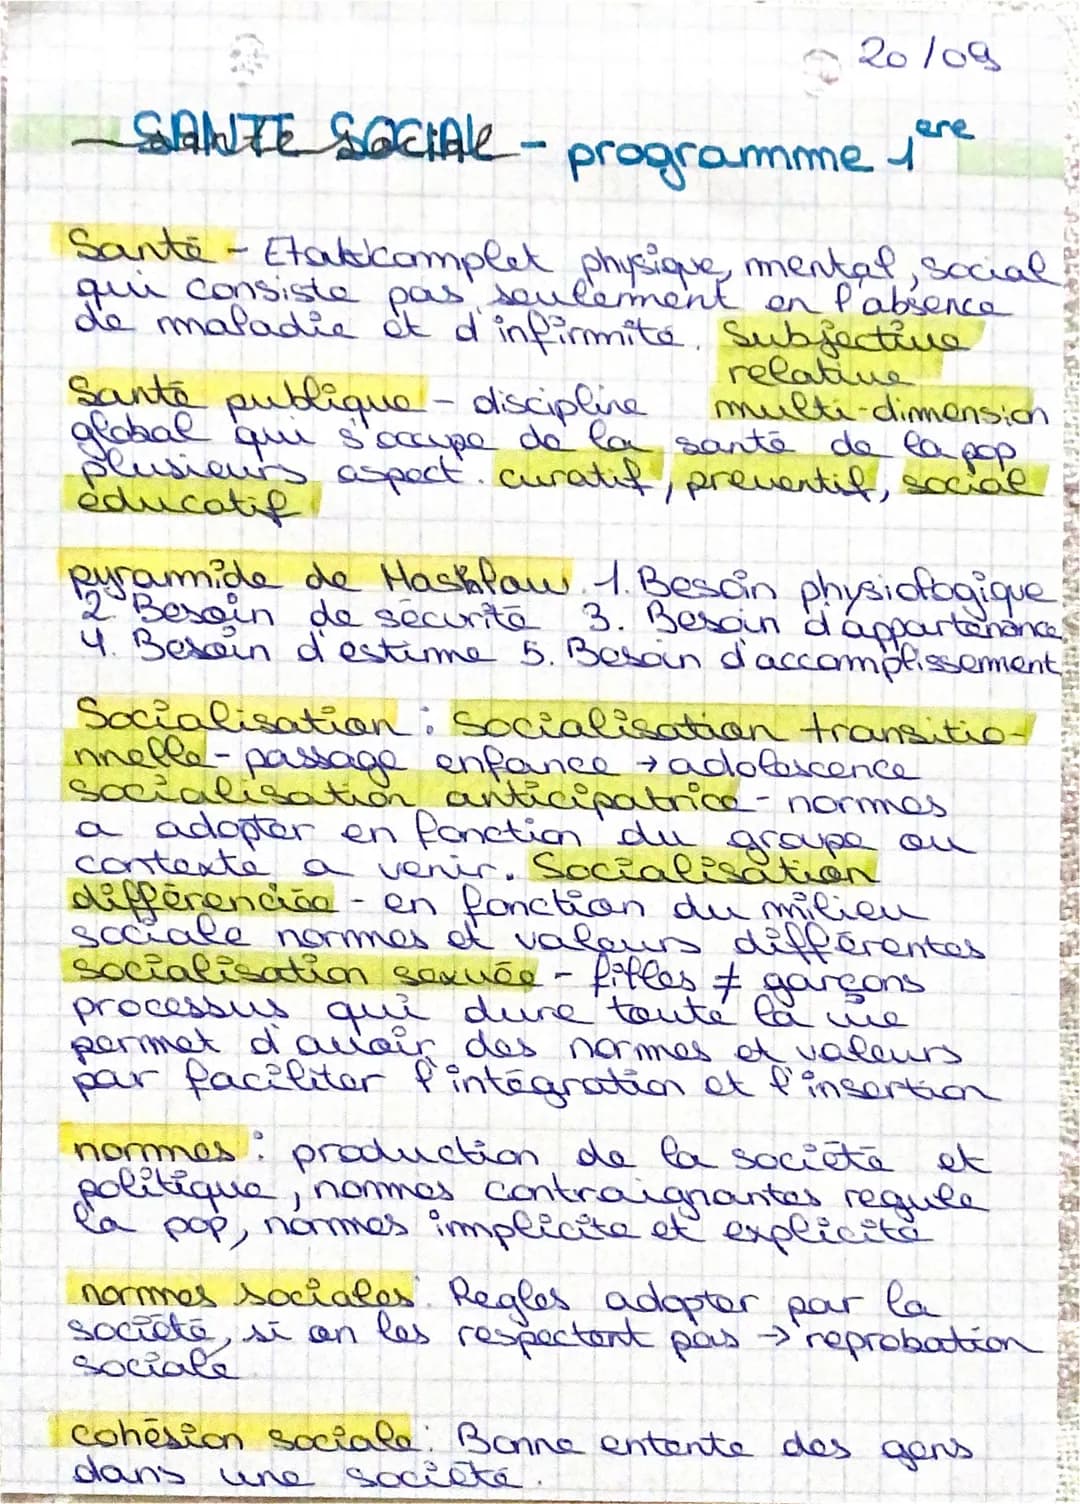 20/09
SANTE SOCIAL - programme 1ere
Santé - Etat complet physique, mental, social,
qui consiste pas seulement en l'absence
de maladie et d'infirmité. Subjective
relative
Santé publique - discipline multi-dimension
global qui s'occupe de la santé de la pop
plusieurs aspect. curatif, preventif, social
éducatif
pyramide de Maslow. 1. Besoin physiologique
2. Besoin de sécurité 3. Besoin d'appartenance,
4. Besoin d'estime 5. Besoin d'accomplissement
Socialisation : Socialisation transitio-
nnelle - passage enfance → adolescence
Socialisation anticipatrice - normes
a adopter en fonction du groupe ou
contexte a venir. Socialisation
différenciée - en fonction du milieu
sociale normes et valeurs différentes
socialisation sexuée - filles ≠ garçons
processus qui dure toute la vie
permet d'avoir des normes et valeurs
par faciliter l'intégration et l'insertion
normes : production de la société et
politique, normes contraignantes regule
la pop, normes implicite et explicite
normes sociales : Regles adopter par la
société, si on les respectent pas → reprobation
sociale
cohésion sociale : Bonne entente des gens
dans une société.